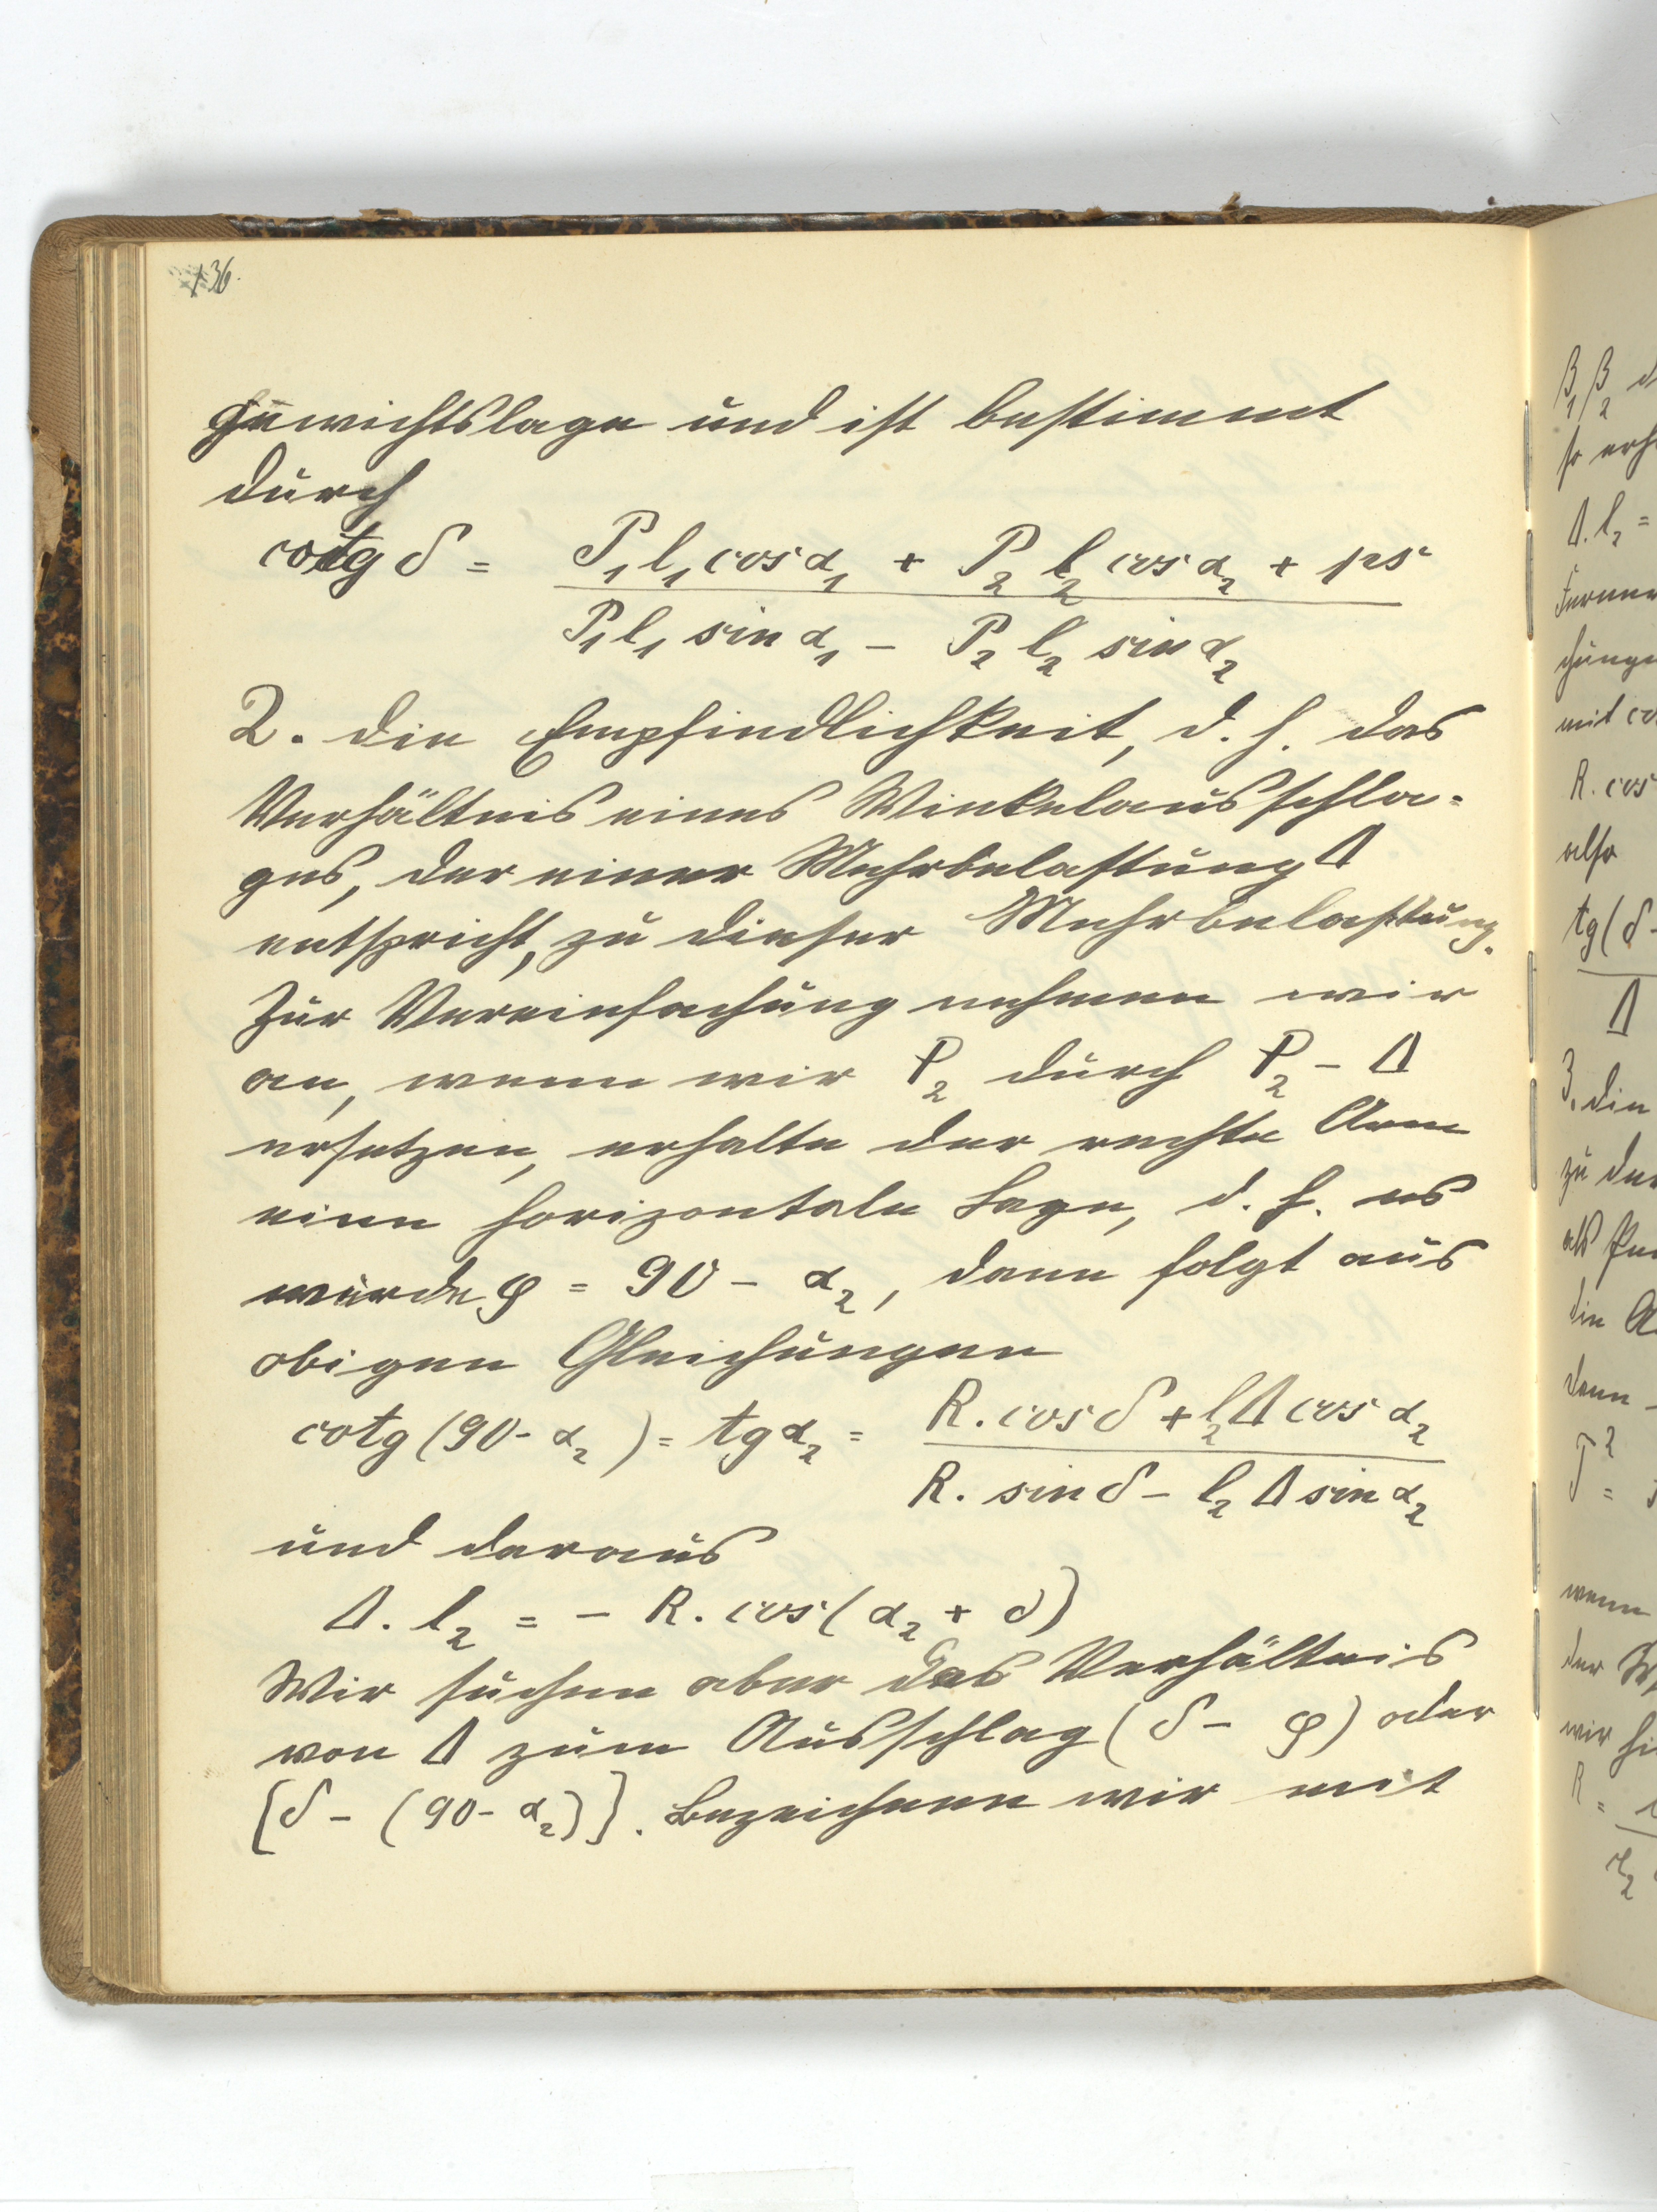 136.
gewichtslage und ist bestimmt
durch
cotg δ = (P₁l₁cosα₁ + P₂l₂cosα₂ + ps) / (P₁l₁ sinα₁ – P₂l₂ sinα₂)
2. die Empfindlichkeit, d. h. das
Verhältnis eines Winkelausschla-
ges, der einer Mehrbelastung Δ
entspricht, zu dieser Mehrbelastung.
Zur Vereinfachung nehmen wir
an, wenn wir P₂ durch P₂ – Δ
ersetzen, erhalte der rechte Arm
eine horizontale Lage, d. h. es
würde φ = 90 – α₂, dann folgt aus
obigen Gleichungen
cotg(90 - α₂) = tgα₂ = (R. cosδ + l₂Δcosα₂) / (R. sinδ – l₂Δsinα₂)
und daraus
Δ. l₂ = – R. cos(α₂ + δ)
Wir suchen aber das Verhältnis
von Δ zum Ausschlag (δ – φ) oder
[δ – (90 - α₂)]. Bezeichnen wir mit
β₁ β₂ d
so erh
Δ. l₂ =
Ferner
chunge
mit co
R. cos
also
tg(δ -
Δ
3. die
zu der
als
die A
dann
T² =
wenn
der
wir hi
R =